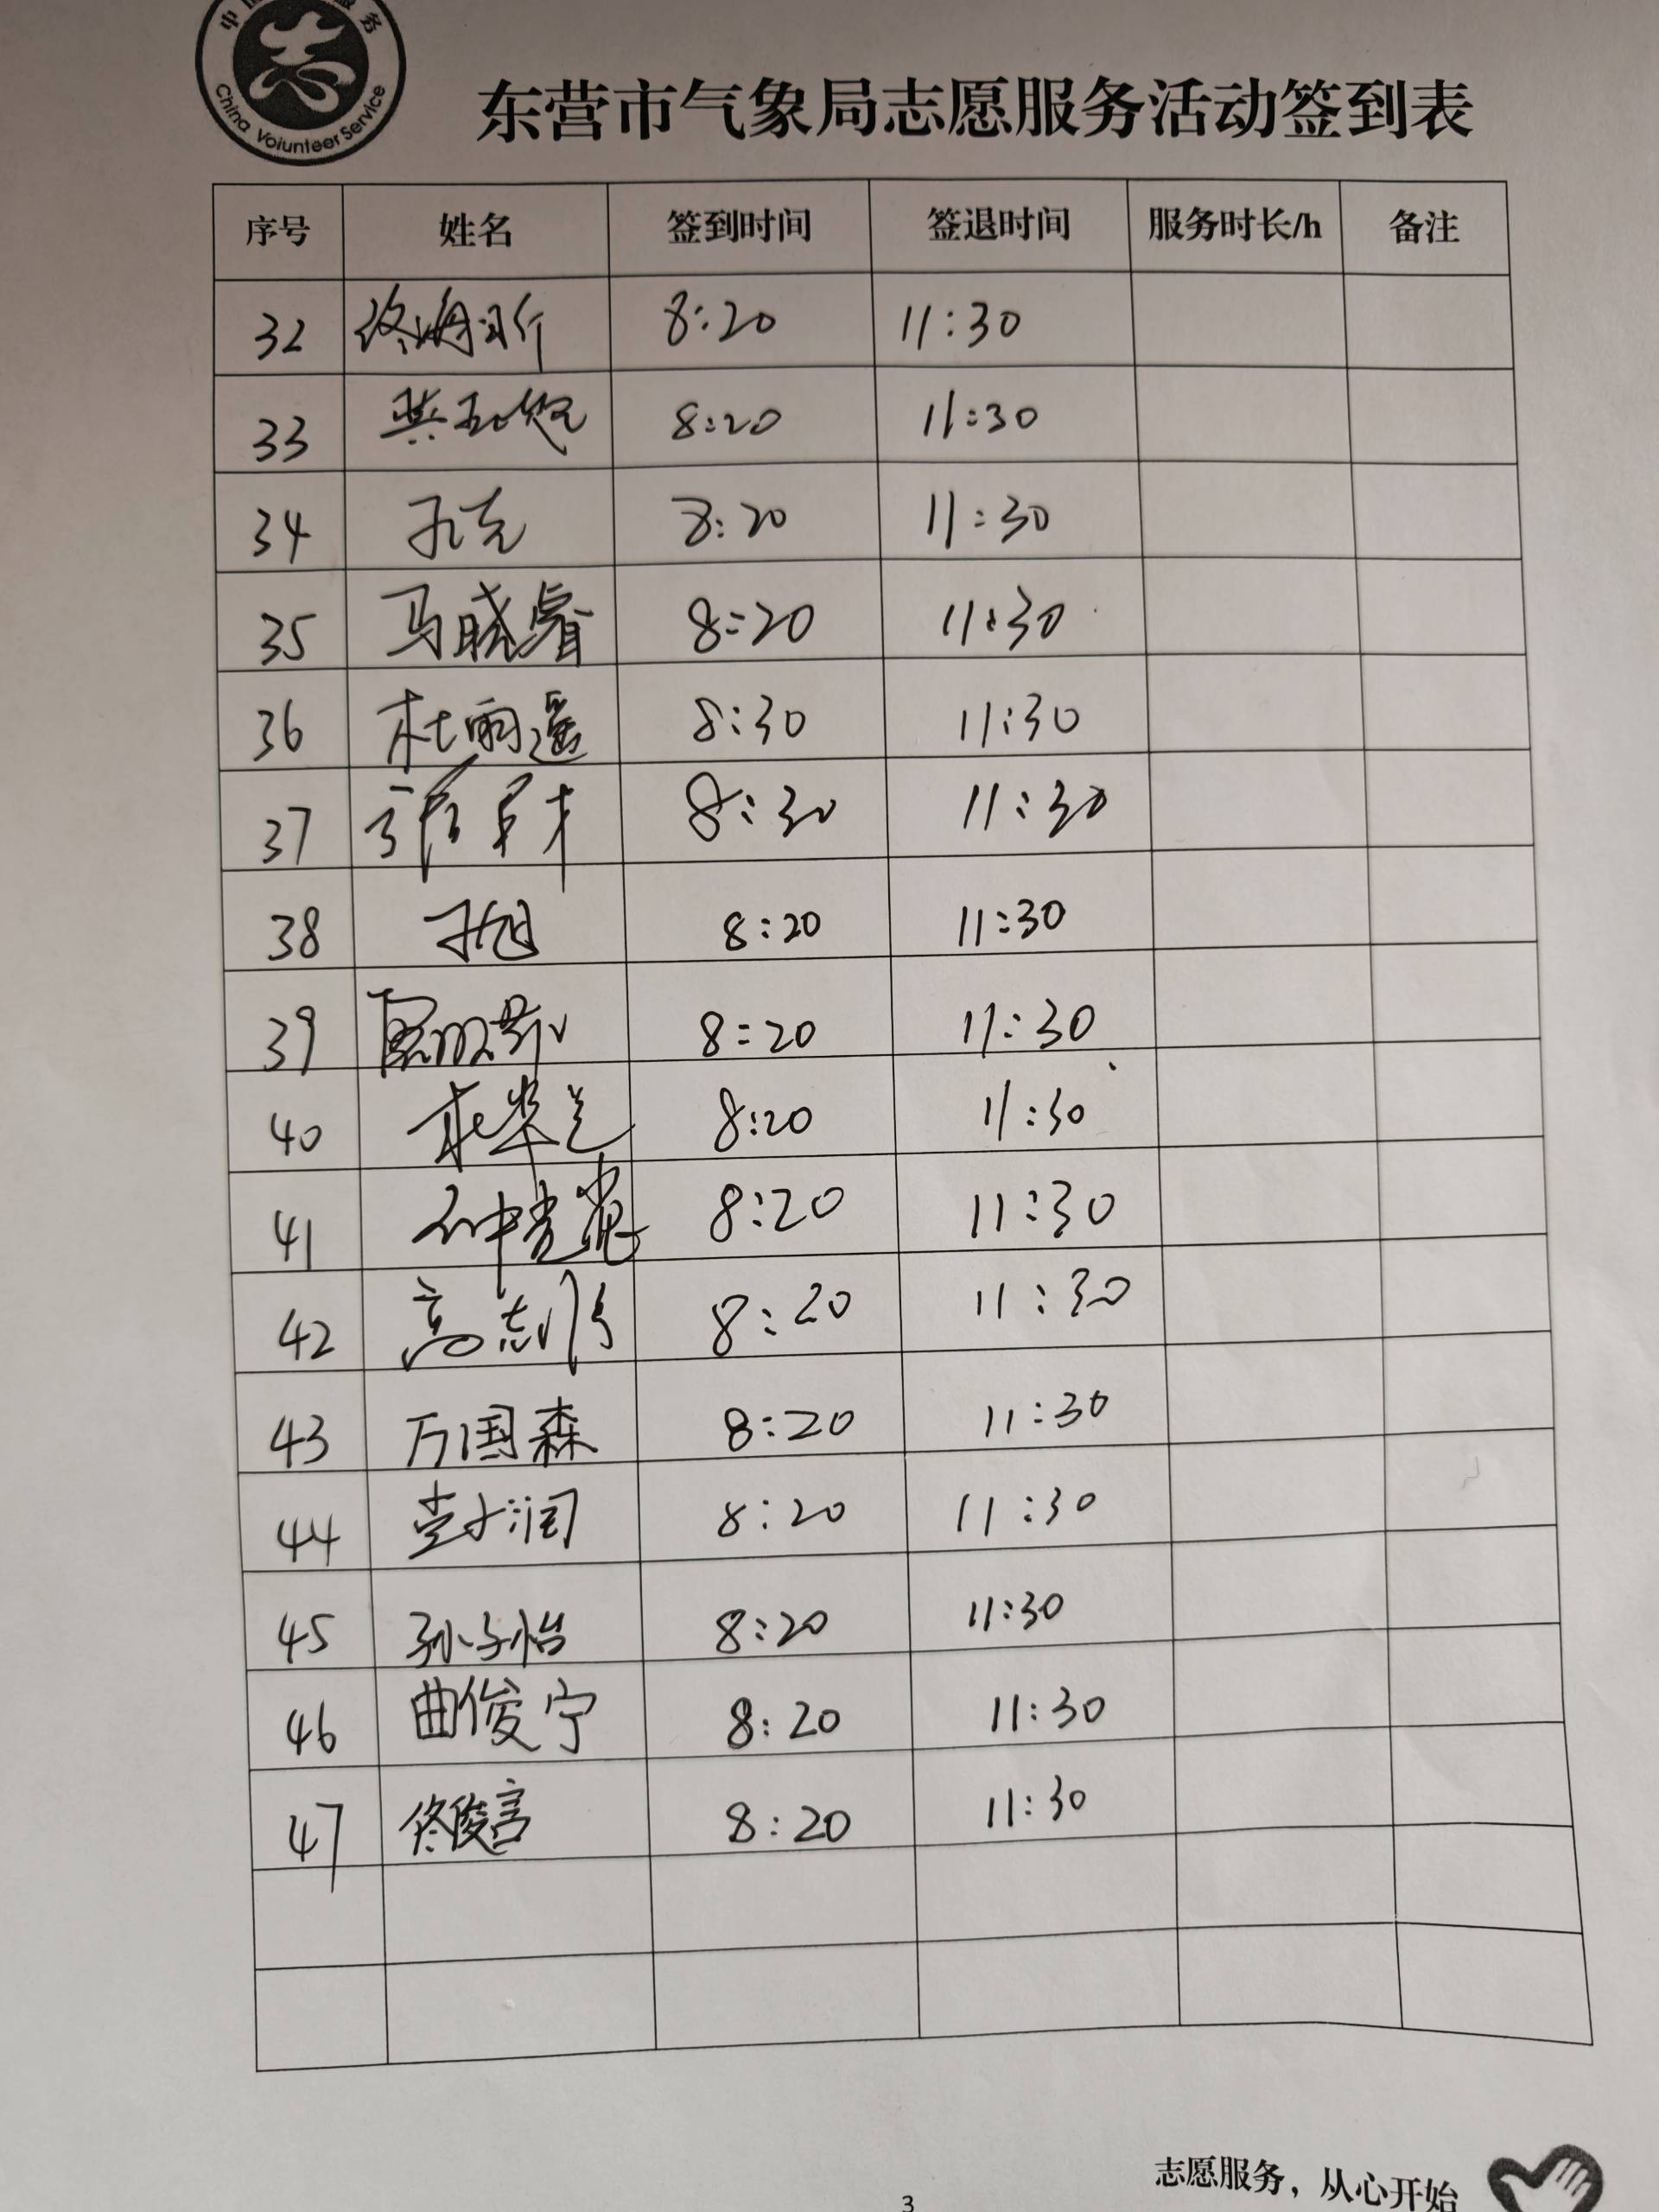 China Voiunteer Service
东营市气象局志愿服务活动签到表
序号 姓名 签到时间 签退时间 服务时长/h 备注
32 8:20 11:30
33 8:20 11:30
34 8:20 11:30
35 马晓睿 8:20 11:30
36 杜雨遥 8:30 11:30
37 8:30 11:30
38 8:20 11:30
39 8:20 11:30
40 8:20 11:30
41 8:20 11:30
42 高志 8:20 11:30
43 万国森 8:20 11:30
44 8:20 11:30
45 孙子怡 8:20 11:30
46 曲俊宁 8:20 11:30
47 佟俊言 8:20 11:30
志愿服务，从心开始
3